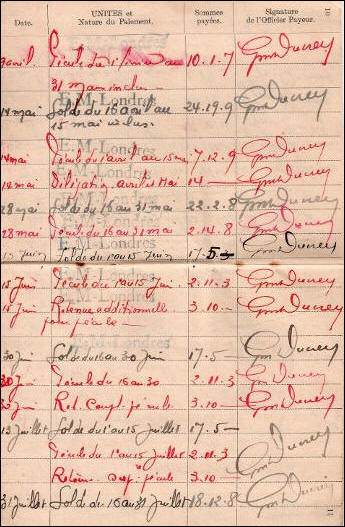 10
Date. UNITES et Nature du Paiement. Sommes payées. Signature de l'Officier Payeur.
avril Pécule du 1 au 10.1.7 GmDucrey
31 mars inclus
E.M-Londres
14 mai Solde du 16 avril au 24.19.9 GmDucrey
15 mai inclus.
E.M-Londres
14 mai Pécule du 1 avril au 15 mai 7.12.9 GmDucrey
14 mai Délégation avril et Mai 14 — GmDucrey
E.M-Londres
28 mai Solde du 16 au 31 mai 22.2.8 GmDucrey
28 mai Pécule du 16 au 31 mai 2.14.8 GmDucrey
E.M-Londres
15 Juin Solde du 1 au 15 Juin 17.5 — GmDucrey
E.M-Londres
15 Juin Pécule du 1 au 15 Juin 2.11.3 GmDucrey
E.M-Londres
15 Juin Retenue additionnelle 3.10 — GmDucrey
pour pécule —
30 Juin Solde du 16 au 30 Juin 17.5 — GmDucrey
30 Juin Pécule du 16 au 30 2.11.3 GmDucrey
30 Juin Ret. Compl. pécule 3.10 — GmDucrey
13 Juillet Solde du 1 au 15 Juillet 17.5 —
Pécule du 1 au 15 Juillet 2.11.3 GmDucrey
Retenue Supp. pécule 3.10 —
31 Juillet Solde du 16 au 31 Juillet 18.12.8 GmDucrey
11